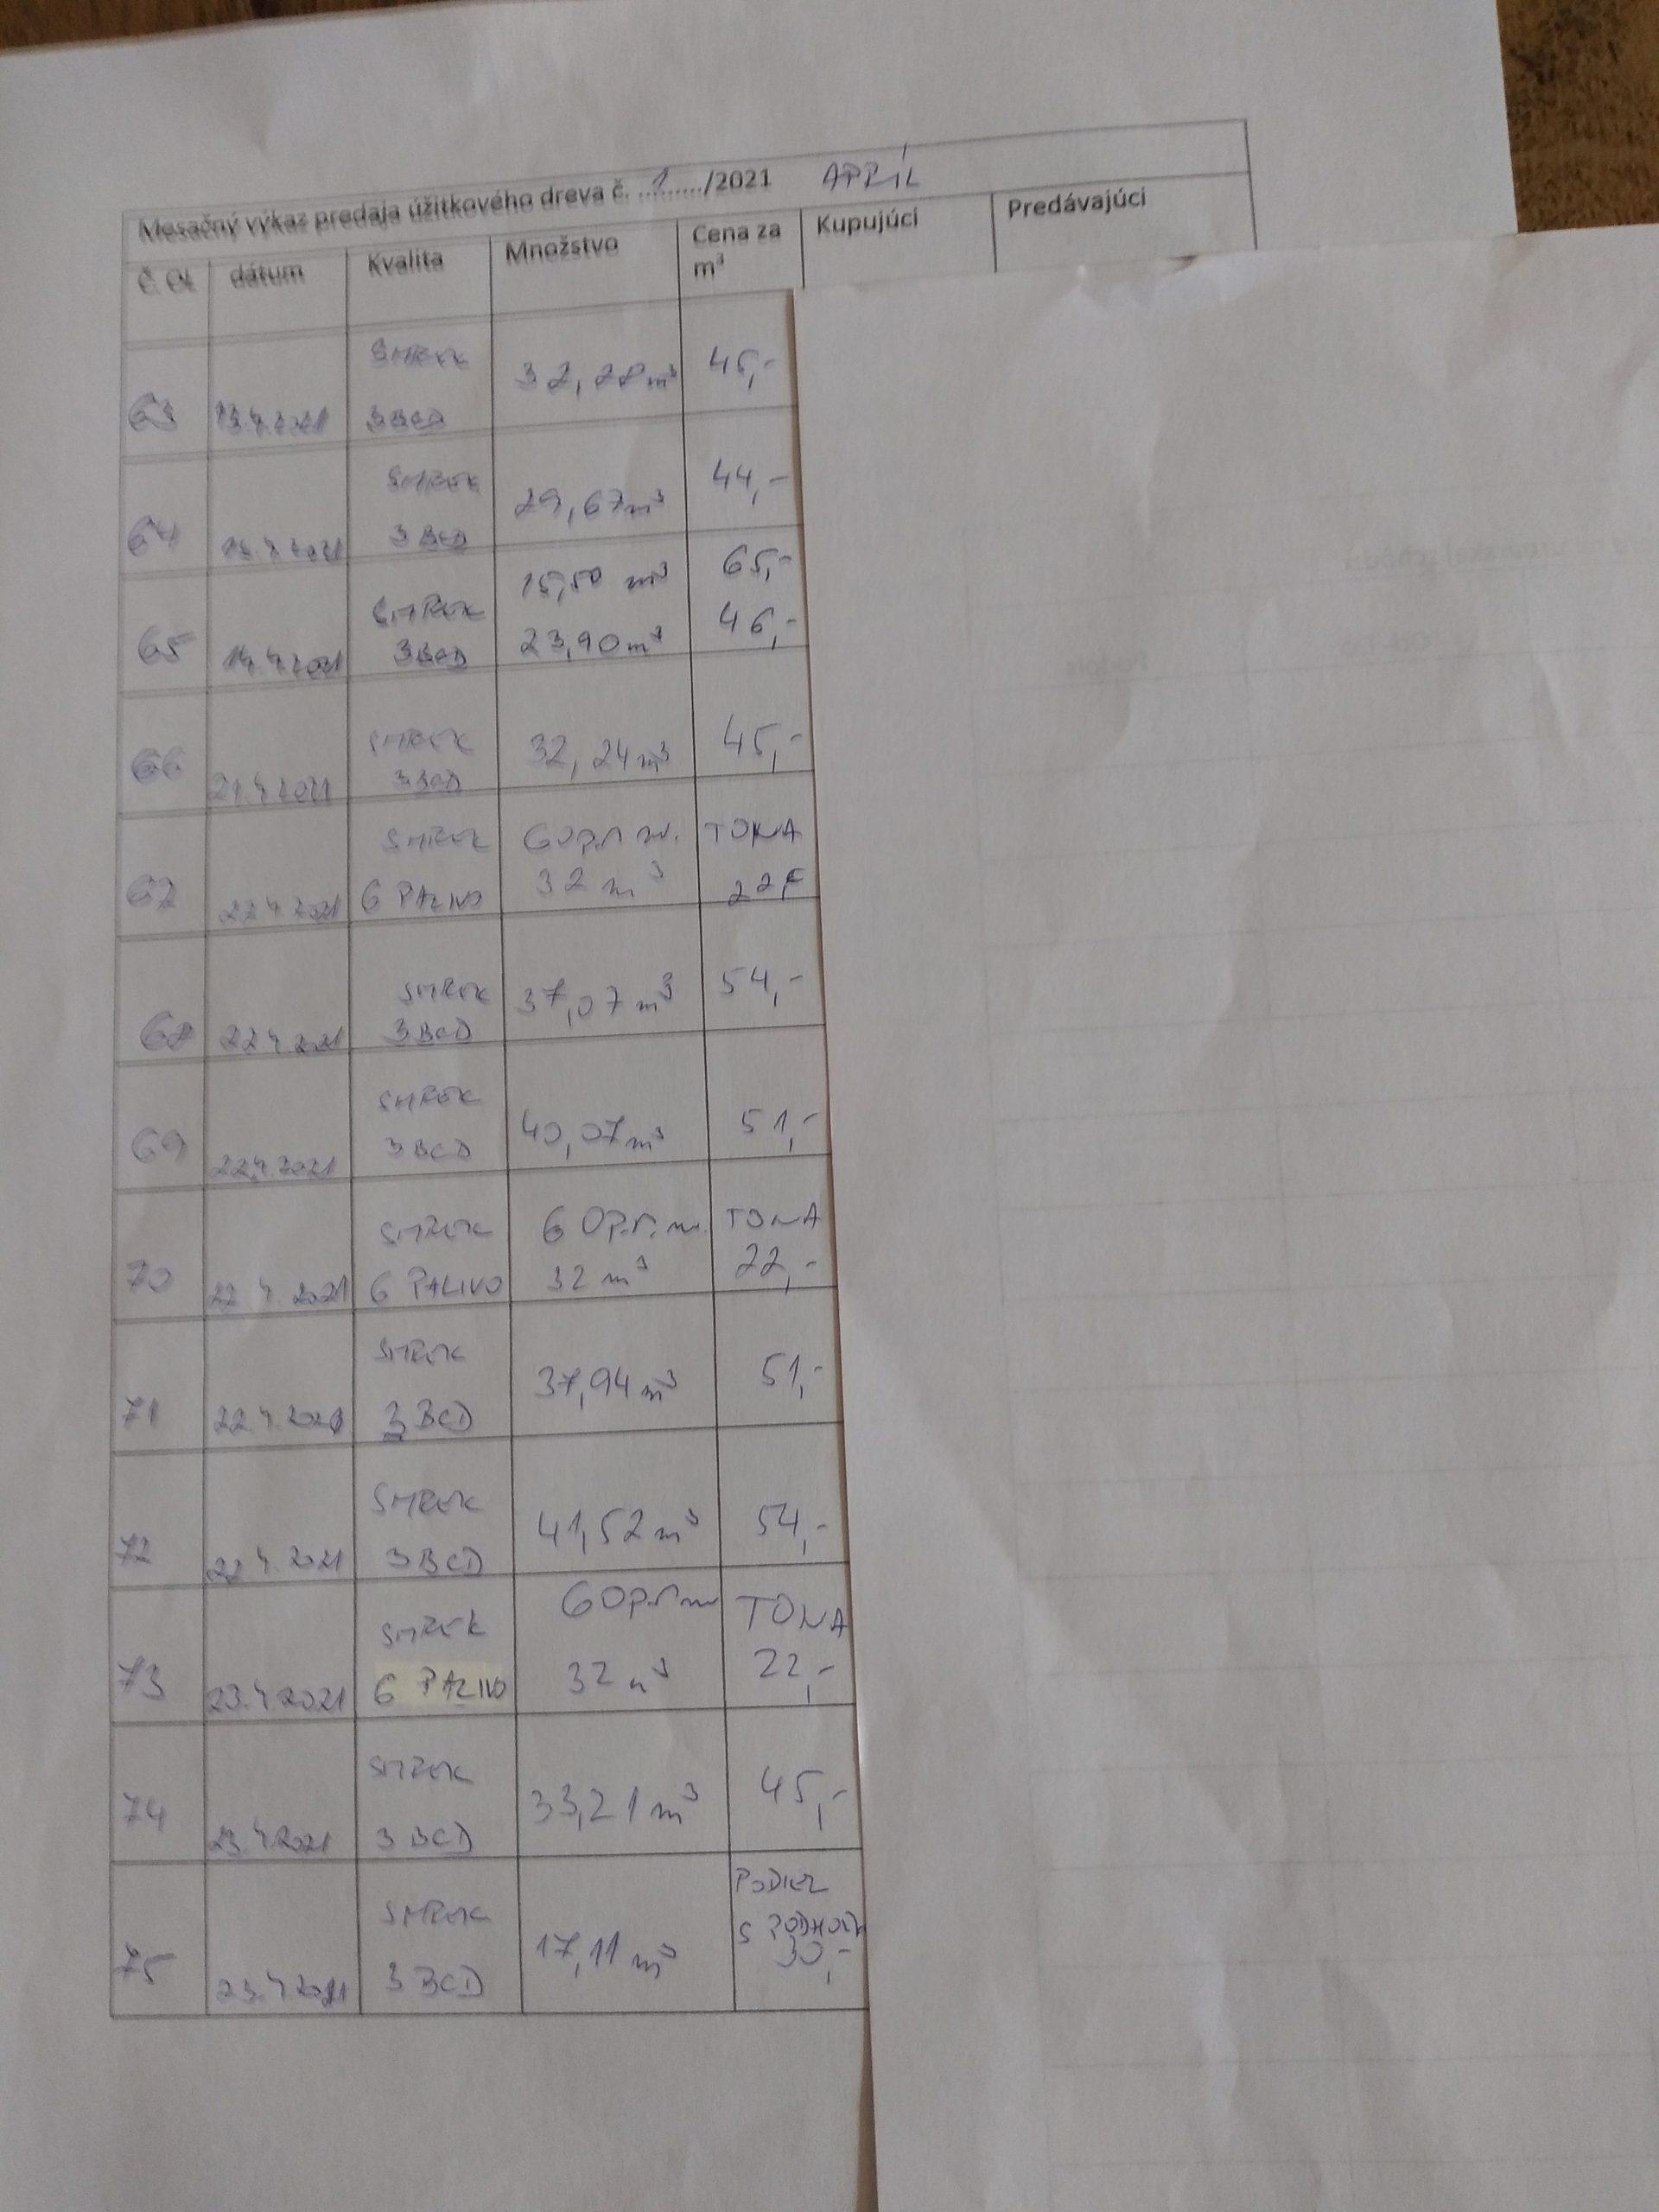 Mesačný výkaz predaja úžitkového dreva č. ....1...../2021 APRÍL
Č. OL dátum Kvalita Množstvo Cena za m³ Kupujúci Predávajúci
63 13.4.2021 SMREK 3BCD 32,28 m³ 45,-
64 14.4.2021 SMREK 3BCD 29,67 m³ 44,-
65 14.4.2021 SMREK 3BCD 15,50 m³ 65,-
23,90 m³ 46,-
66 21.4.2021 SMREK 3BCD 32,24 m³ 45,-
67 22.4.2021 SMREK 6 PALIVO 60 p.r.m. 32 m³ TONA 22,-
68 22.4.2021 SMREK 3BCD 37,07 m³ 54,-
69 22.4.2021 SMREK 3BCD 40,07 m³ 51,-
70 22.4.2021 SMREK 6 PALIVO 60 p.r.m. 32 m³ TONA 22,-
71 22.4.2021 SMREK 3BCD 37,94 m³ 51,-
72 22.4.2021 SMREK 3BCD 41,52 m³ 54,-
73 23.4.2021 SMREK 6 PALIVO 60 p.r.m 32 m³ TONA 22,-
74 23.4.2021 SMREK 3BCD 33,21 m³ 45,-
75 23.4.2021 SMREK 3BCD 17,11 m³ PODIEL S 30,-